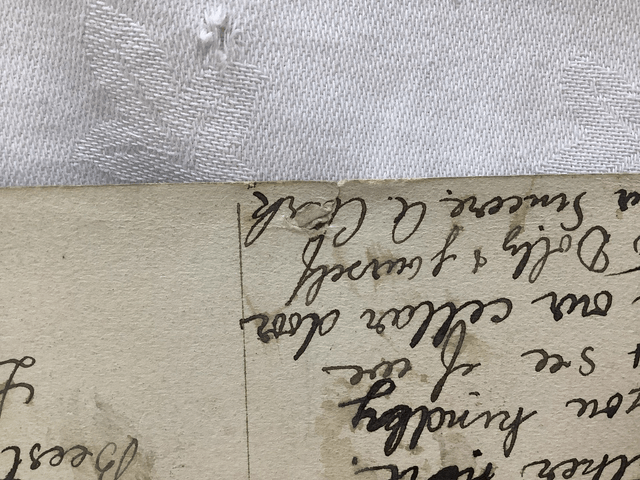 you kindly
& see if we
our cellar door
Dolly & yourself
Sincere. A.
Best